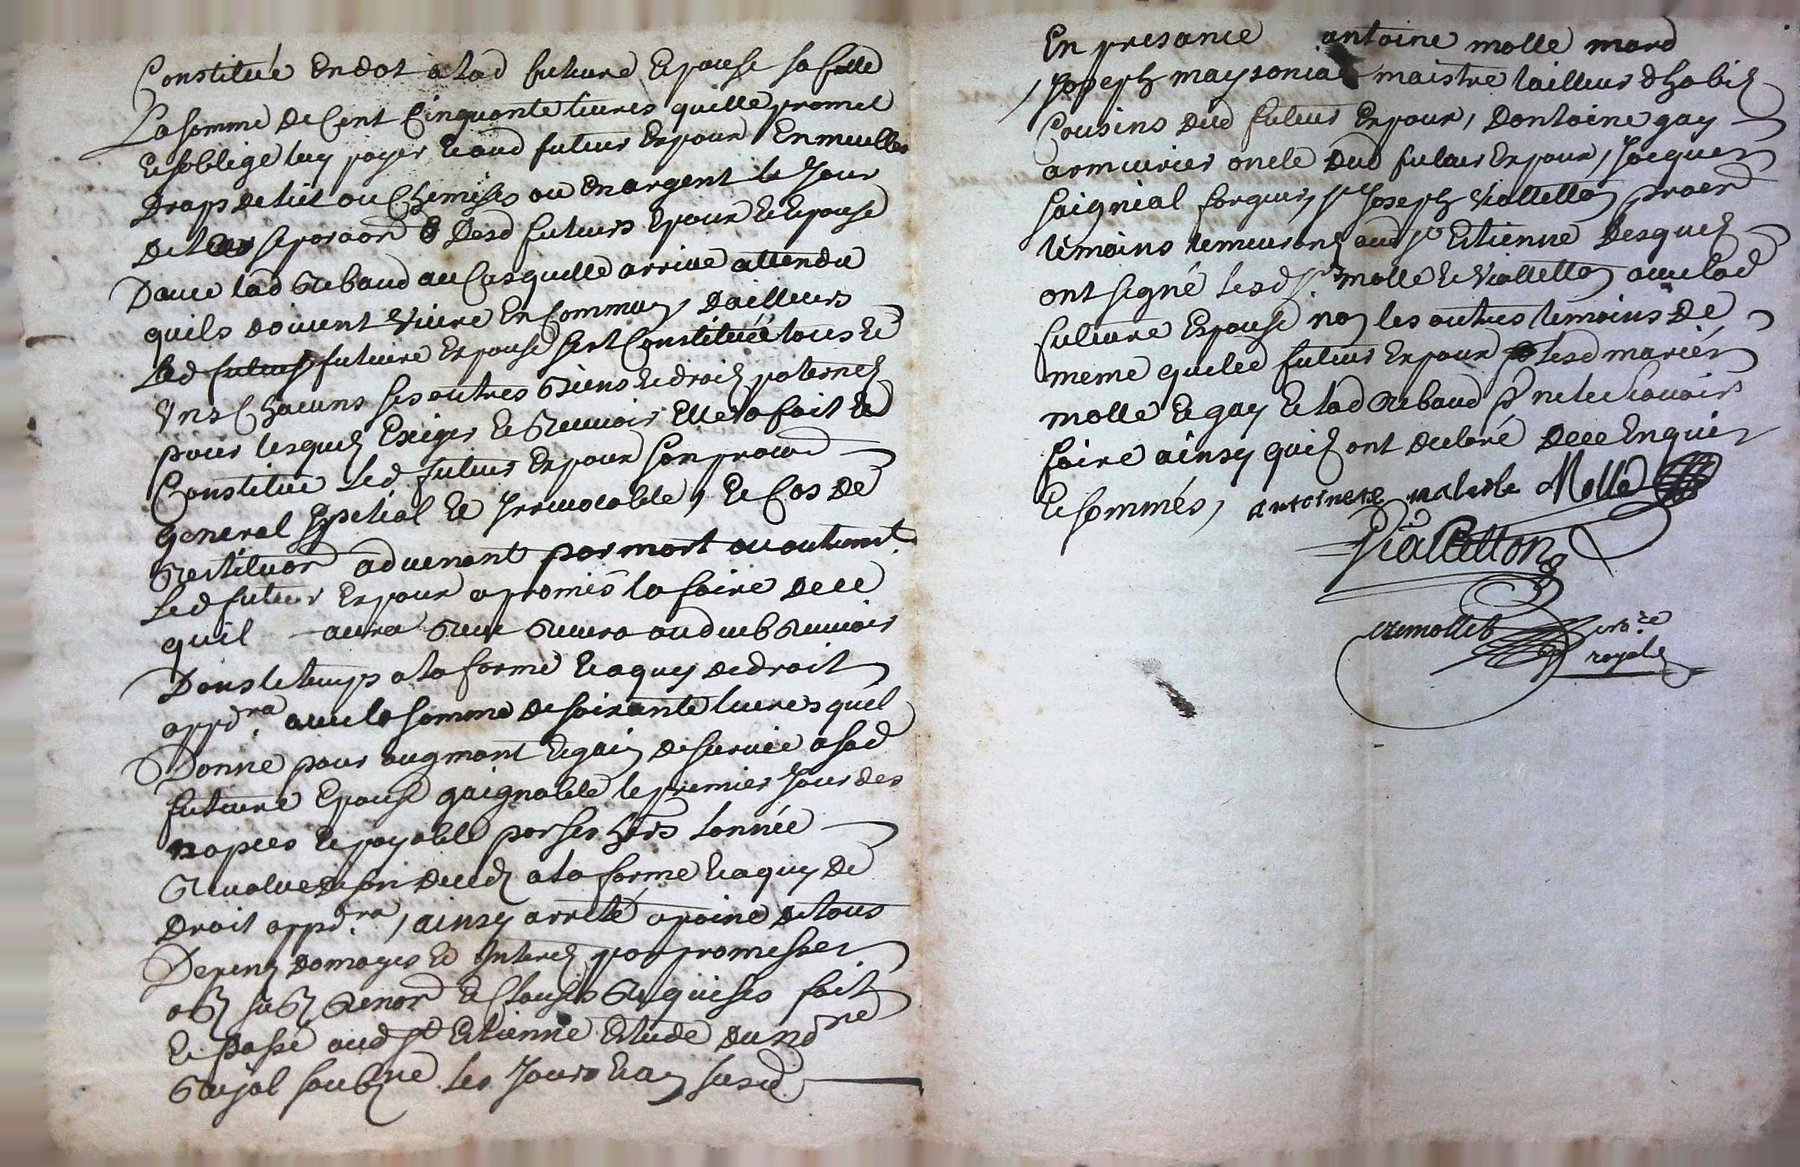 Constitué en dot a lad future Epouse sa fille
La somme de Cent Cinquante livres quelle promet
Et soblige luy payer Et aud futur Expoux En meubles
Draps de lit ou Chemises ou en argent le Jour
de leur separaon desd futurs Epoux Et Epouse
Davec lad Rebaud au Cas quelle arrive attendu
quils doivent vivre En Commun, Dailleurs
Lad future Expouse sest Constituée tous Et
Uns Chacuns ses autres Biens Et droits paternels
pour lesquels Exiger Et Recevoir Elle a fait Et
Constitue led futur Expoux son procur
general special Et Irrevocable, Et Cas de
Restituon advenant par mort ou autremt
Led futur Expoux a promis la faire de ce
quil aura Receu
Dans le temps a la forme Et a quy de droit
appdra. avec la somme de soixante livres quil
Donne pour augmant Et gain de survie a sad
future Epouse gaignable le premier Jour des
nopces Et payable par ses hers lannée
Revolue de son deceds a la forme Et a quy de
Droit appdra, ainsy arreté a paine de tous
Depens domages Et Interets par promesses
obl Renon Et Clauses Requises fait
Et passé aud St Etienne Etude du nore
Royal soubne les Jour Et an susd
En presance antoine molle mard
Joseph maysonial maistre tailleur dhabits
Cousins dud futur Expoux, Dantoine gay
armurier oncle dud futur Expoux, Jacques
saignial forgeur, sr Joseph Vialletton
temoins demeurants aud St Etienne desquels
ont signé lesd srs molle Et Vialletton avec lad
future Expouse non les autres temoins de
meme que led futur Expoux lesd mariés
molle Et gay Et lad Rebaud pr ne le scavoir
faire ainsy quils ont declaré de ce Enquis
Et sommés,
antoinete Molle
Vialletton
royal